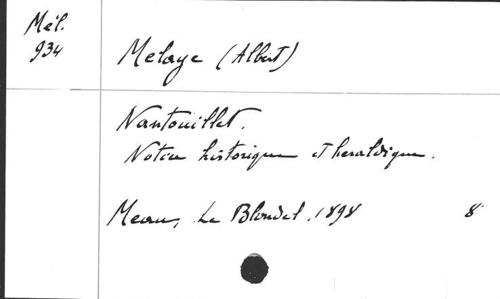 Mél.
934
Melaye (Albert)
Nantouillet.
Notice historique et heraldique.
Meaux, Le Blondel, 1898 8°